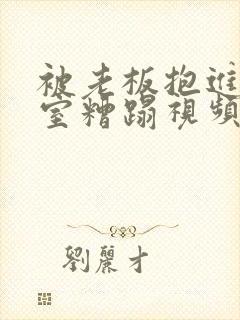 被老板抱進
室糟蹋視頻
劉麗才